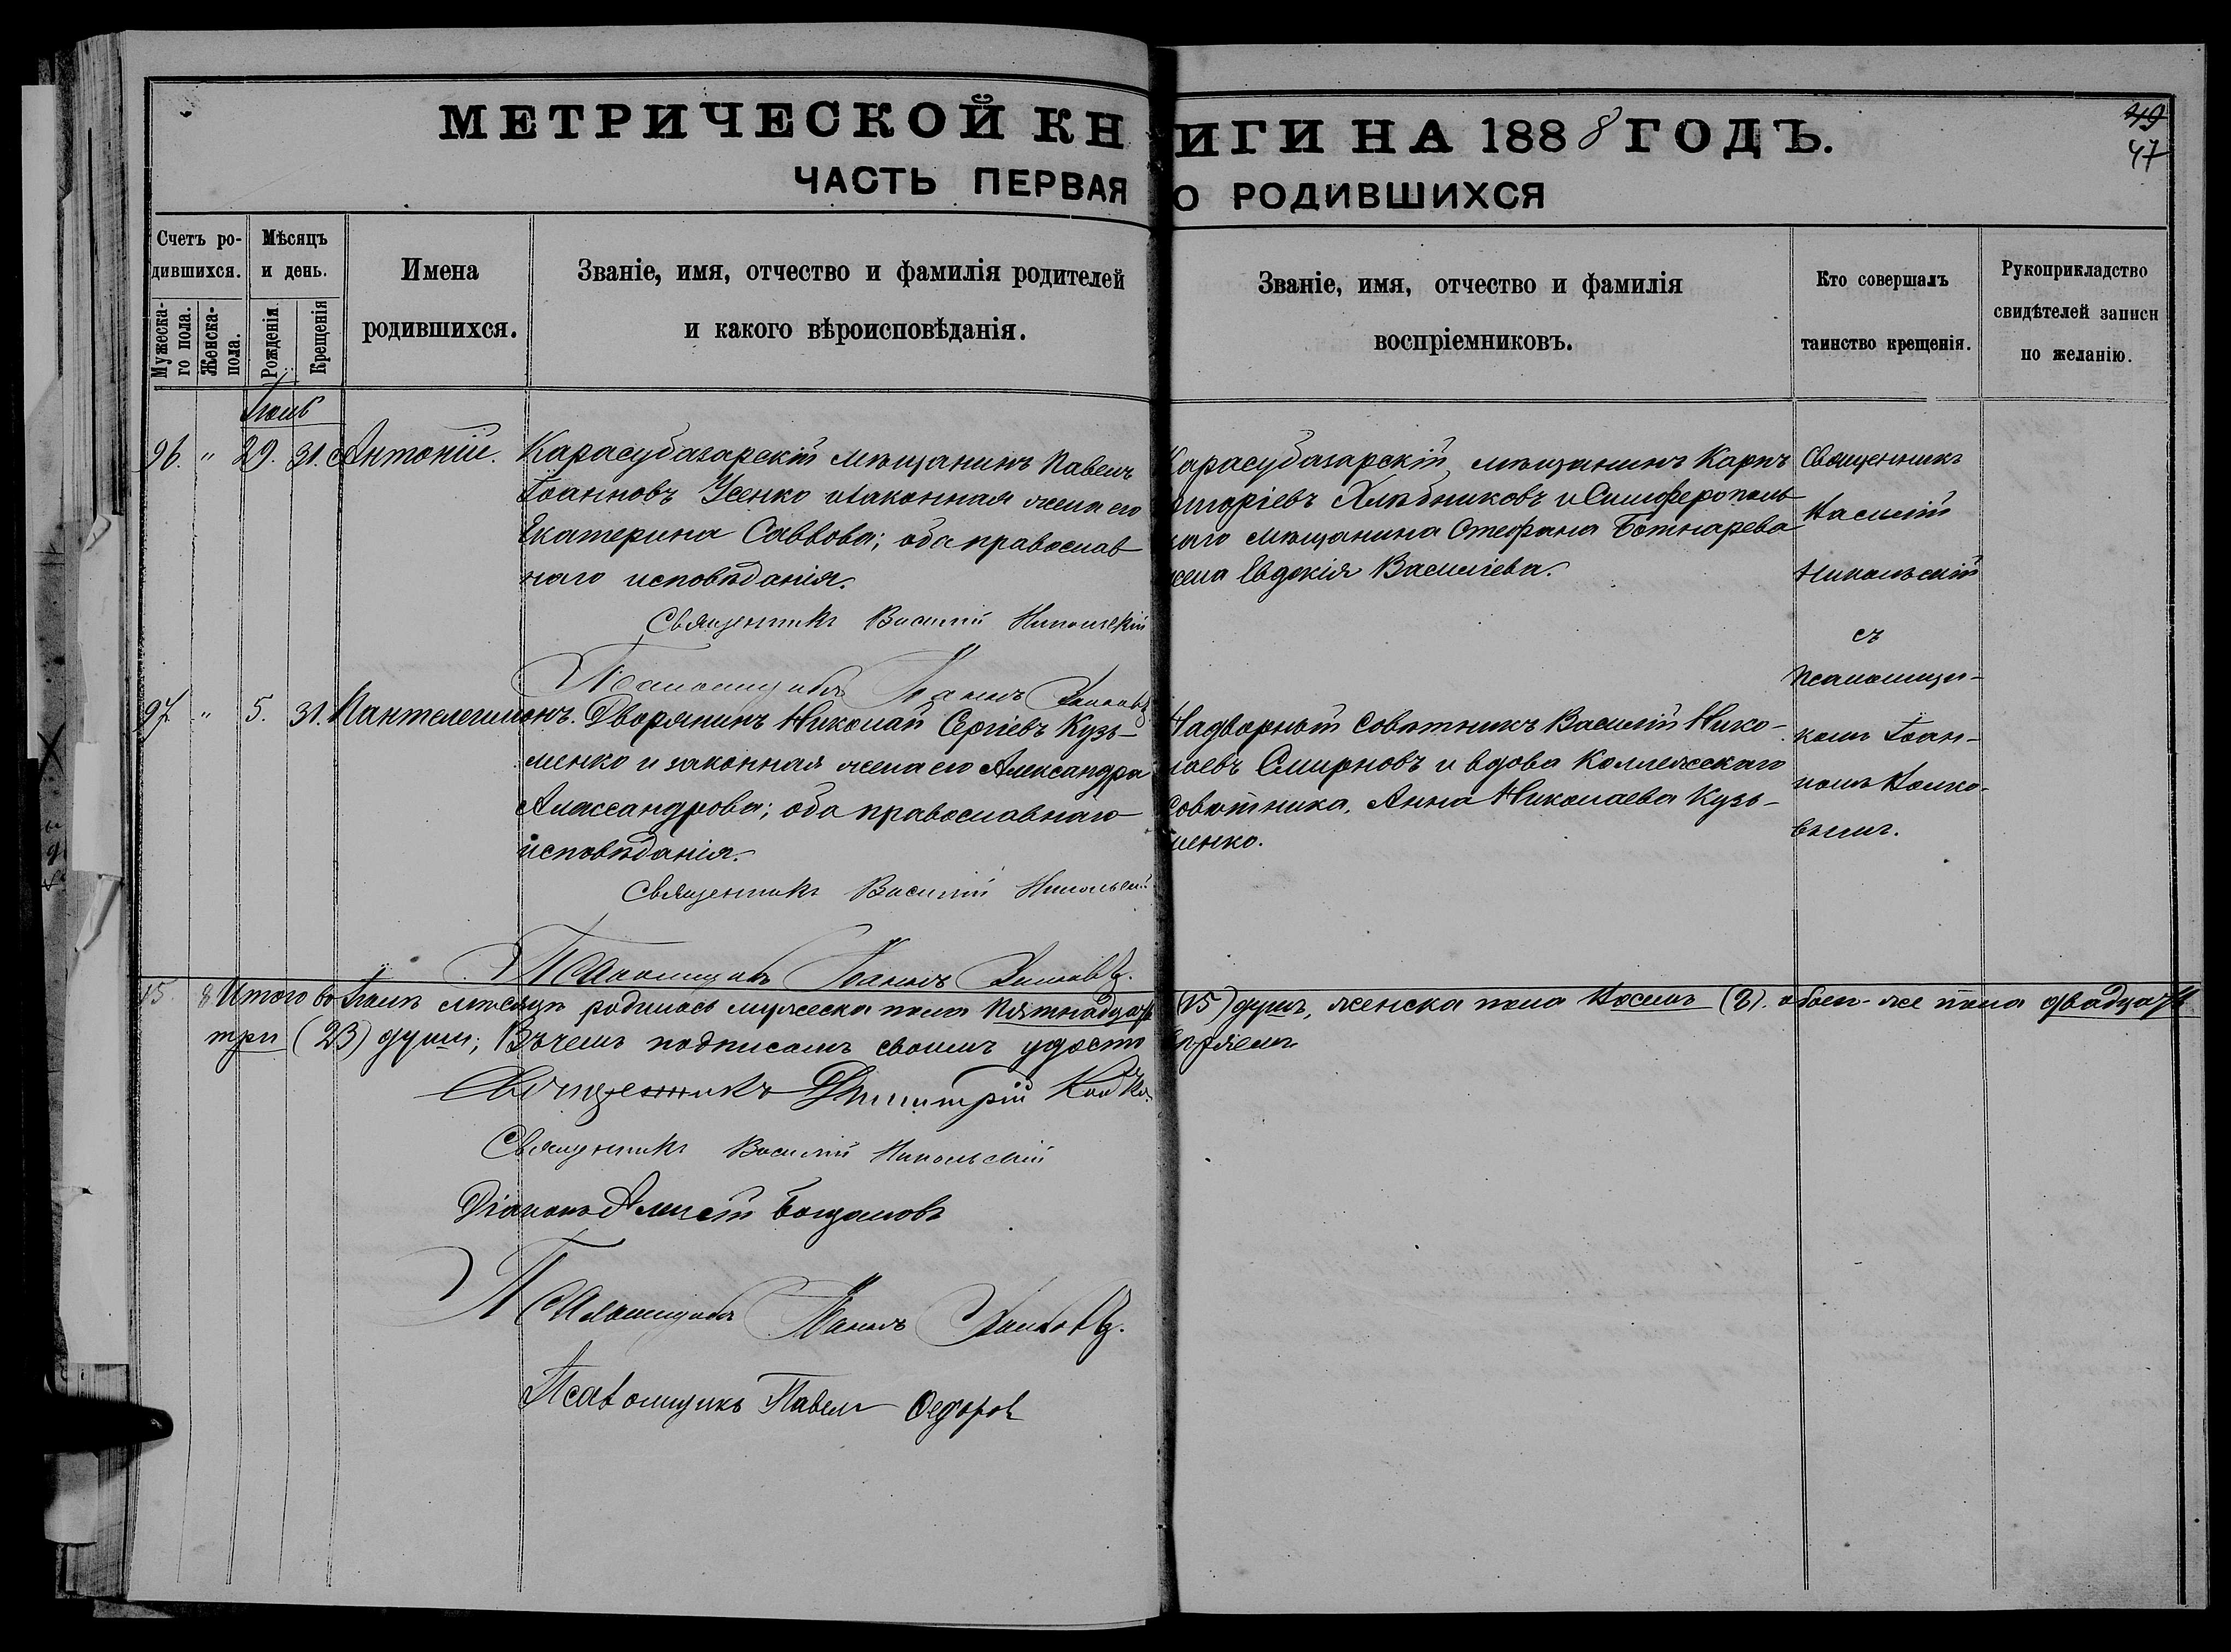 МЕТРИЧЕСКОЙ КНИГИ НА 1888 ГОДЪ.
49
47
ЧАСТЬ ПЕРВАЯ О РОДИВШИХСЯ
Счетъ родившихся.
Мужескаго пола.
Женска- пола.
Мѣсяцъ и день.
Рожденія.
Крещенія
Имена
родившихся.
Званіе, имя, отчество и фамилія родителей
и какого вѣроисповѣданія.
Званіе, имя, отчество и фамилія
воспріемниковъ.
Кто совершалъ
таинство крещенія.
Рукоприкладство
свидѣтелей записи
по желанію.
Іюль
96. " 29. 31. Антоній.
Карасубазарскій мѣщанинъ Павелъ
Іоанновъ Усенко и законная жена его
Екатерина Саввова; оба православ
наго исповѣданія.
Священникъ Василий Никольский
Псаломщикъ Іоаннъ
Карасубазарскій мѣщанинъ Карпъ
Хлѣбниковъ и Симферополь
скаго мѣщанина Стефана Ботнарева
жена Евдокія Василіева.
Священникъ
Василій
Никольскій
съ
псаломщи-
комъ Іоан-
номъ
97. " 5. 31. Пантелеимонъ.
Дворянинъ Николай Сергіевъ Кузь-
менко и законная жена его Александра
Александрова; оба православнаго
исповѣданія.
Священникъ Василий Никольский
Псаломщикъ Іоаннъ
Надворный Совѣтникъ Василій Нико-
лаевъ Смирновъ и вдова Коллежскаго
Совѣтника, Анна Николаева Кузь-
менко.
15. 8 Итого во Іюлѣ мѣсяцѣ родилось мужеска пола пятнадцать (15) душъ, женска пола восемь (8). обоего же пола двадцать
три (23) души; Въ чемъ подписомъ своимъ удостовѣряемъ
Священникъ Димитрій
Священникъ Василий Никольский
Діаконъ Алексѣй
Псаломщикъ Іоаннъ
Псаломщикъ Павелъ Федоровъ